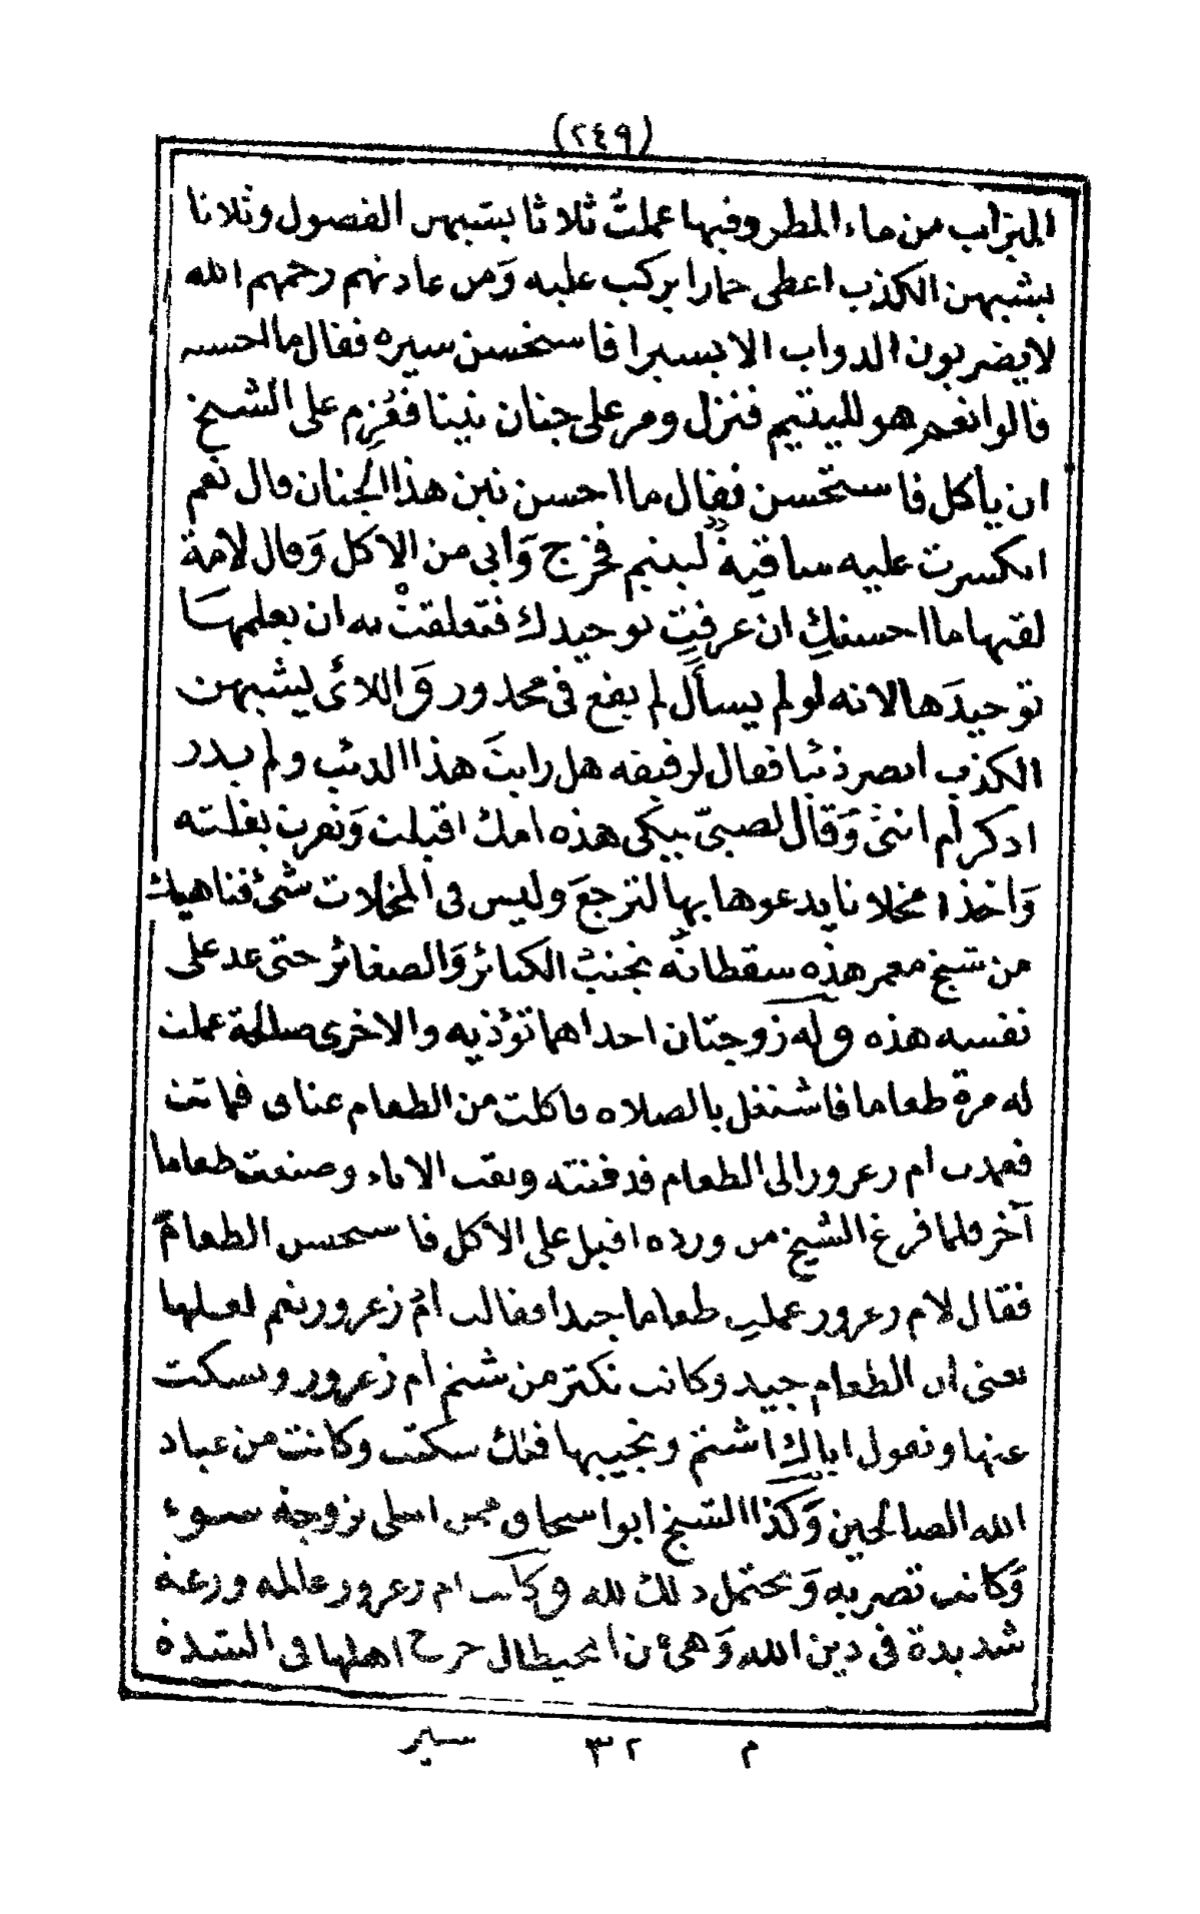 (٢٤٩)
الميزاب من ماء المطر وفيها عملت ثلاثا يشبهن الفضول وثلاثا
يشبهن الكذب اعطى حمارا يركب عليه وَمن عادتهم رحمهم الله
لا يضربون الدواب الا يسيرا فاستحسن سيره فقال ما احسنه
قالوا نعم هو لليتيم فنزل ومر على جنان تينا فعُزِم على الشيخ
ان يأكل فاستحسن فقال ما احسن تين هذا الجنان قال نعم
انكسرت عليه ساقية ليتيم فخرج وَابى من الاكل وَقال لامة
لقيها ما احسنكِ ان عرفتِ توحيدك فتعلقتْ به ان يعلمها
توحيدَها لانه لو لم يسأل لم يقع فى محذور وَاللائى يشبهن
الكذب ابصر ذئبا فقال لرفيقه هل رايتَ هذا الذئب ولم يدر
اذكر أم انثى وَقال لصبىّ يبكى هذه امك اقبلت وَنفرت بغلته
وَاخذ مخلاتا يدعوها بها لترجعَ وليس فى المخلات شئ فناهيك
من شيخ معمر هذه سقطاته تجنب الكبائر وَالصغائر حتى عد على
نفسه هذه وله زوجتان احداهما تؤذيه والاخرى صالحة عملت
له مرة طعاما فاشتغل بالصلاه فاكلت من الطعام عناق فماتت
فعمدت ام زعرور الى الطعام فدفنته ونقت الاناء وصنعت طعاما
آخر فلما فرغ الشيخ من ورده اقبل على الاكل فاستحسن الطعام
فقال لام زعرور عملتِ طعاما جيدا فقالت ام زعرور نعم لعلها
تعنى ان الطعام جيد وكانت تكثر من شتم ام زعرور وتسكت
عنها وتقول اياك اشتم وتجيبها فعنك سكتت وكانت من عباد
الله الصالحين وَكذا الشيخ ابو اسحاق ممن ابتلى بزوجة سوء
وَكانت تضربه وَيحتمل ذلك لله وكانت ام زعرور عالمه ورعة
شديدة فى دين الله وَهى من ايحيطال خرج اهلها فى الشدة
م ٣٢ سير